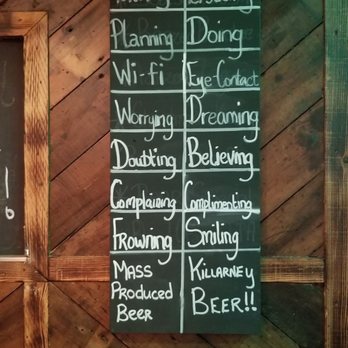 Planning Doing
Wi-fi Eye-Contact
Worrying Dreaming
Doubting Believing
Complaining Complimenting
Frowning Smiling
Mass Killarney
Produced Beer!!
Beer